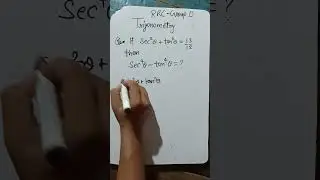 RRC-Group D
Trigonometry
Que. If Sec²θ + tan²θ = 13/12
then
Sec⁴θ - tan⁴θ = ?
θ + tan²θ